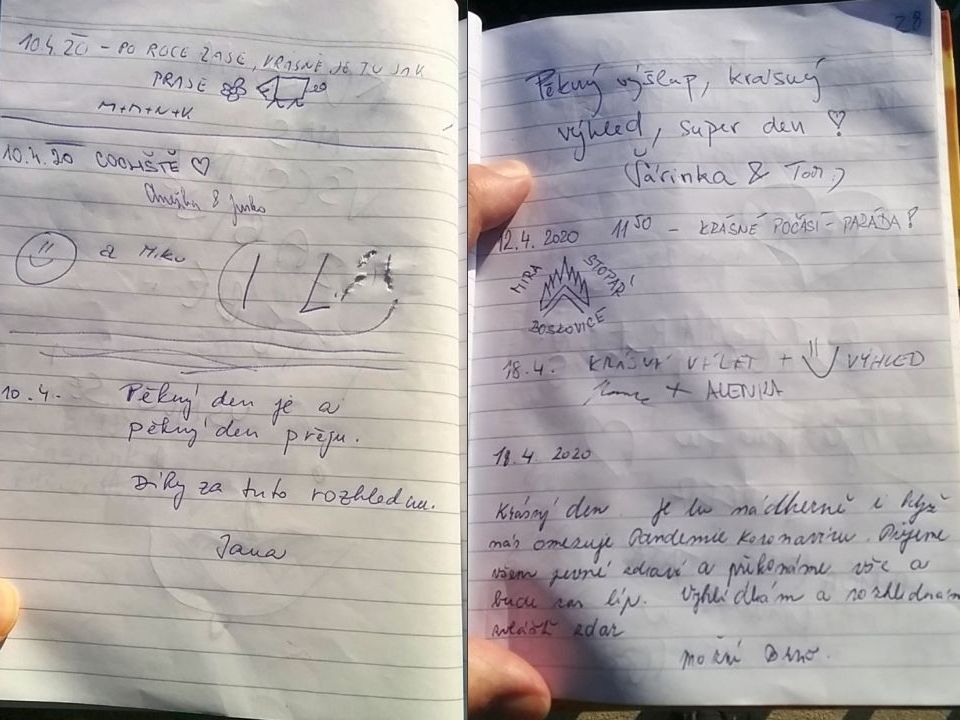 10.4.20 – PO ROCE ZASE, KRÁSNĚ JE TU JAK
PRASE
M+M+N+K
10.4.20 COOMIŠTĚ ♡
Anežka & Junko
a Miku
10.4.
Pěkný den je a
pěkný den přeju.
Díky za tuto rozhlednu.
Jana
28
Pěkný výšlap, krásný
výhled, super den ♡
Šárinka & Tom ;)
12.4.2020 11:50 – KRÁSNÉ POČASÍ – PARÁDA!
MÍRA STOPAŘI
BOSKOVICE
18.4. KRÁSNÝ VÝLET + VÝHLED
+ ALENKA
18.4. 2020
Krásný den je tu nádherně i když
nás omezuje Pandemie koronaviru. Přejeme
všem pevné zdraví a překonáme vše a
bude zas líp. Vyhlídkám a rozhlednám
zvláště zdar
Brno.